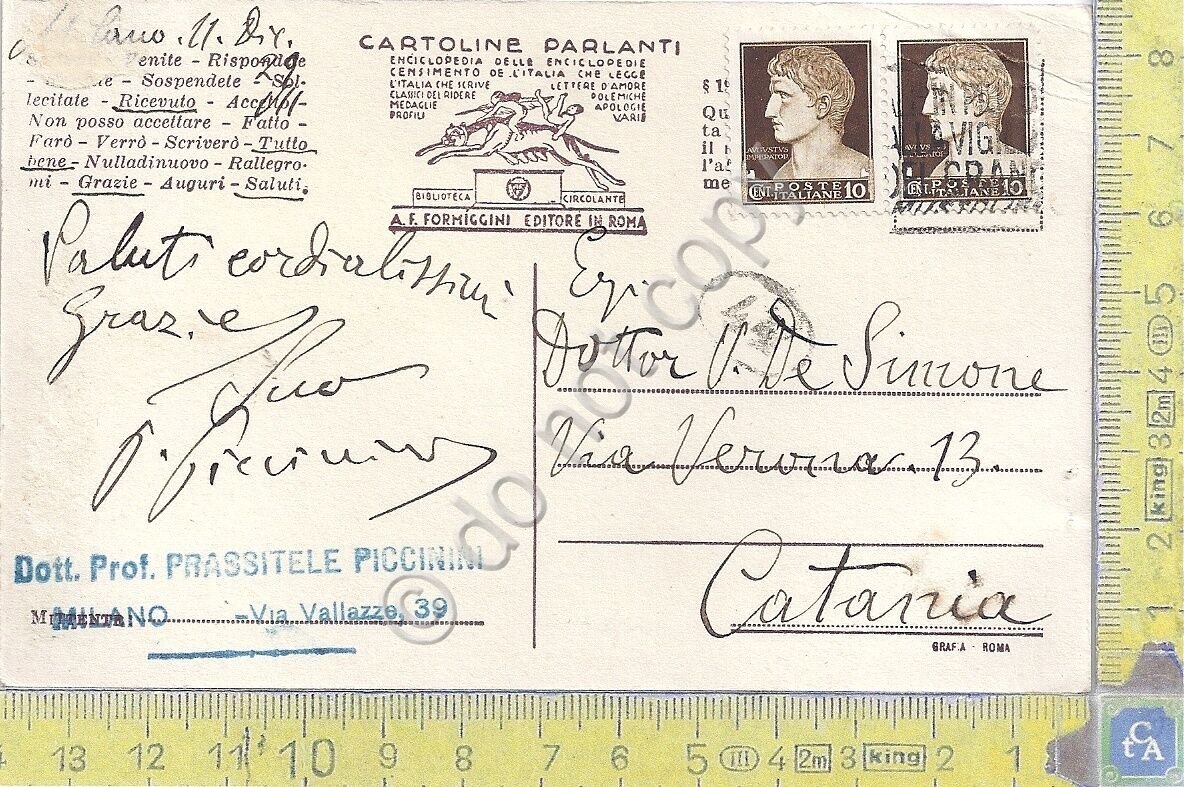 Milano. 11. Dic.
29
Venite - Rispondete
Sospendete - Sol-
lecitate - Ricevuto - Accetto -
Non posso accettare - Fatto -
Farò - Verrò - Scriverò - Tutto
bene - Nulladinuovo - Rallegro-
mi - Grazie - Auguri - Saluti.
CARTOLINE PARLANTI
ENCICLOPEDIA DELLE ENCICLOPEDIE
CENSIMENTO DE L'ITALIA CHE LEGGE
L'ITALIA CHE SCRIVE LETTERE D'AMORE
CLASSICI DEL RIDERE POLEMICHE
MEDAGLIE APOLOGIE
PROFILI VARIE
BIBLIOTECA CIRCOLANTE
A. F. FORMIGGINI EDITORE IN ROMA
§ 19
Qu
ta
il
l'a
me
AVGVSTVS
IMPERATOR
CENT. POSTE
ITALIANE 10
CENT. POSTE
ITALIANE 10
LA VIGILIA
DEL GRANO
MUSSOLINI
Saluti cordialissimi
Grazie
Suo
P. Piccinini
Egr.
Dottor V. De Simone
Via Verona. 13.
Catania
Dott. Prof. PRASSITELE PICCININI
MILANO - Via Vallazze, 39
MITTENTE
GRAF.A - ROMA
© do not copy
8
7
6
5
4
3
2m
king
2
1
13 12 11 10 9 8 7 6 5 III 4 2m 3 king 2 1
tCA